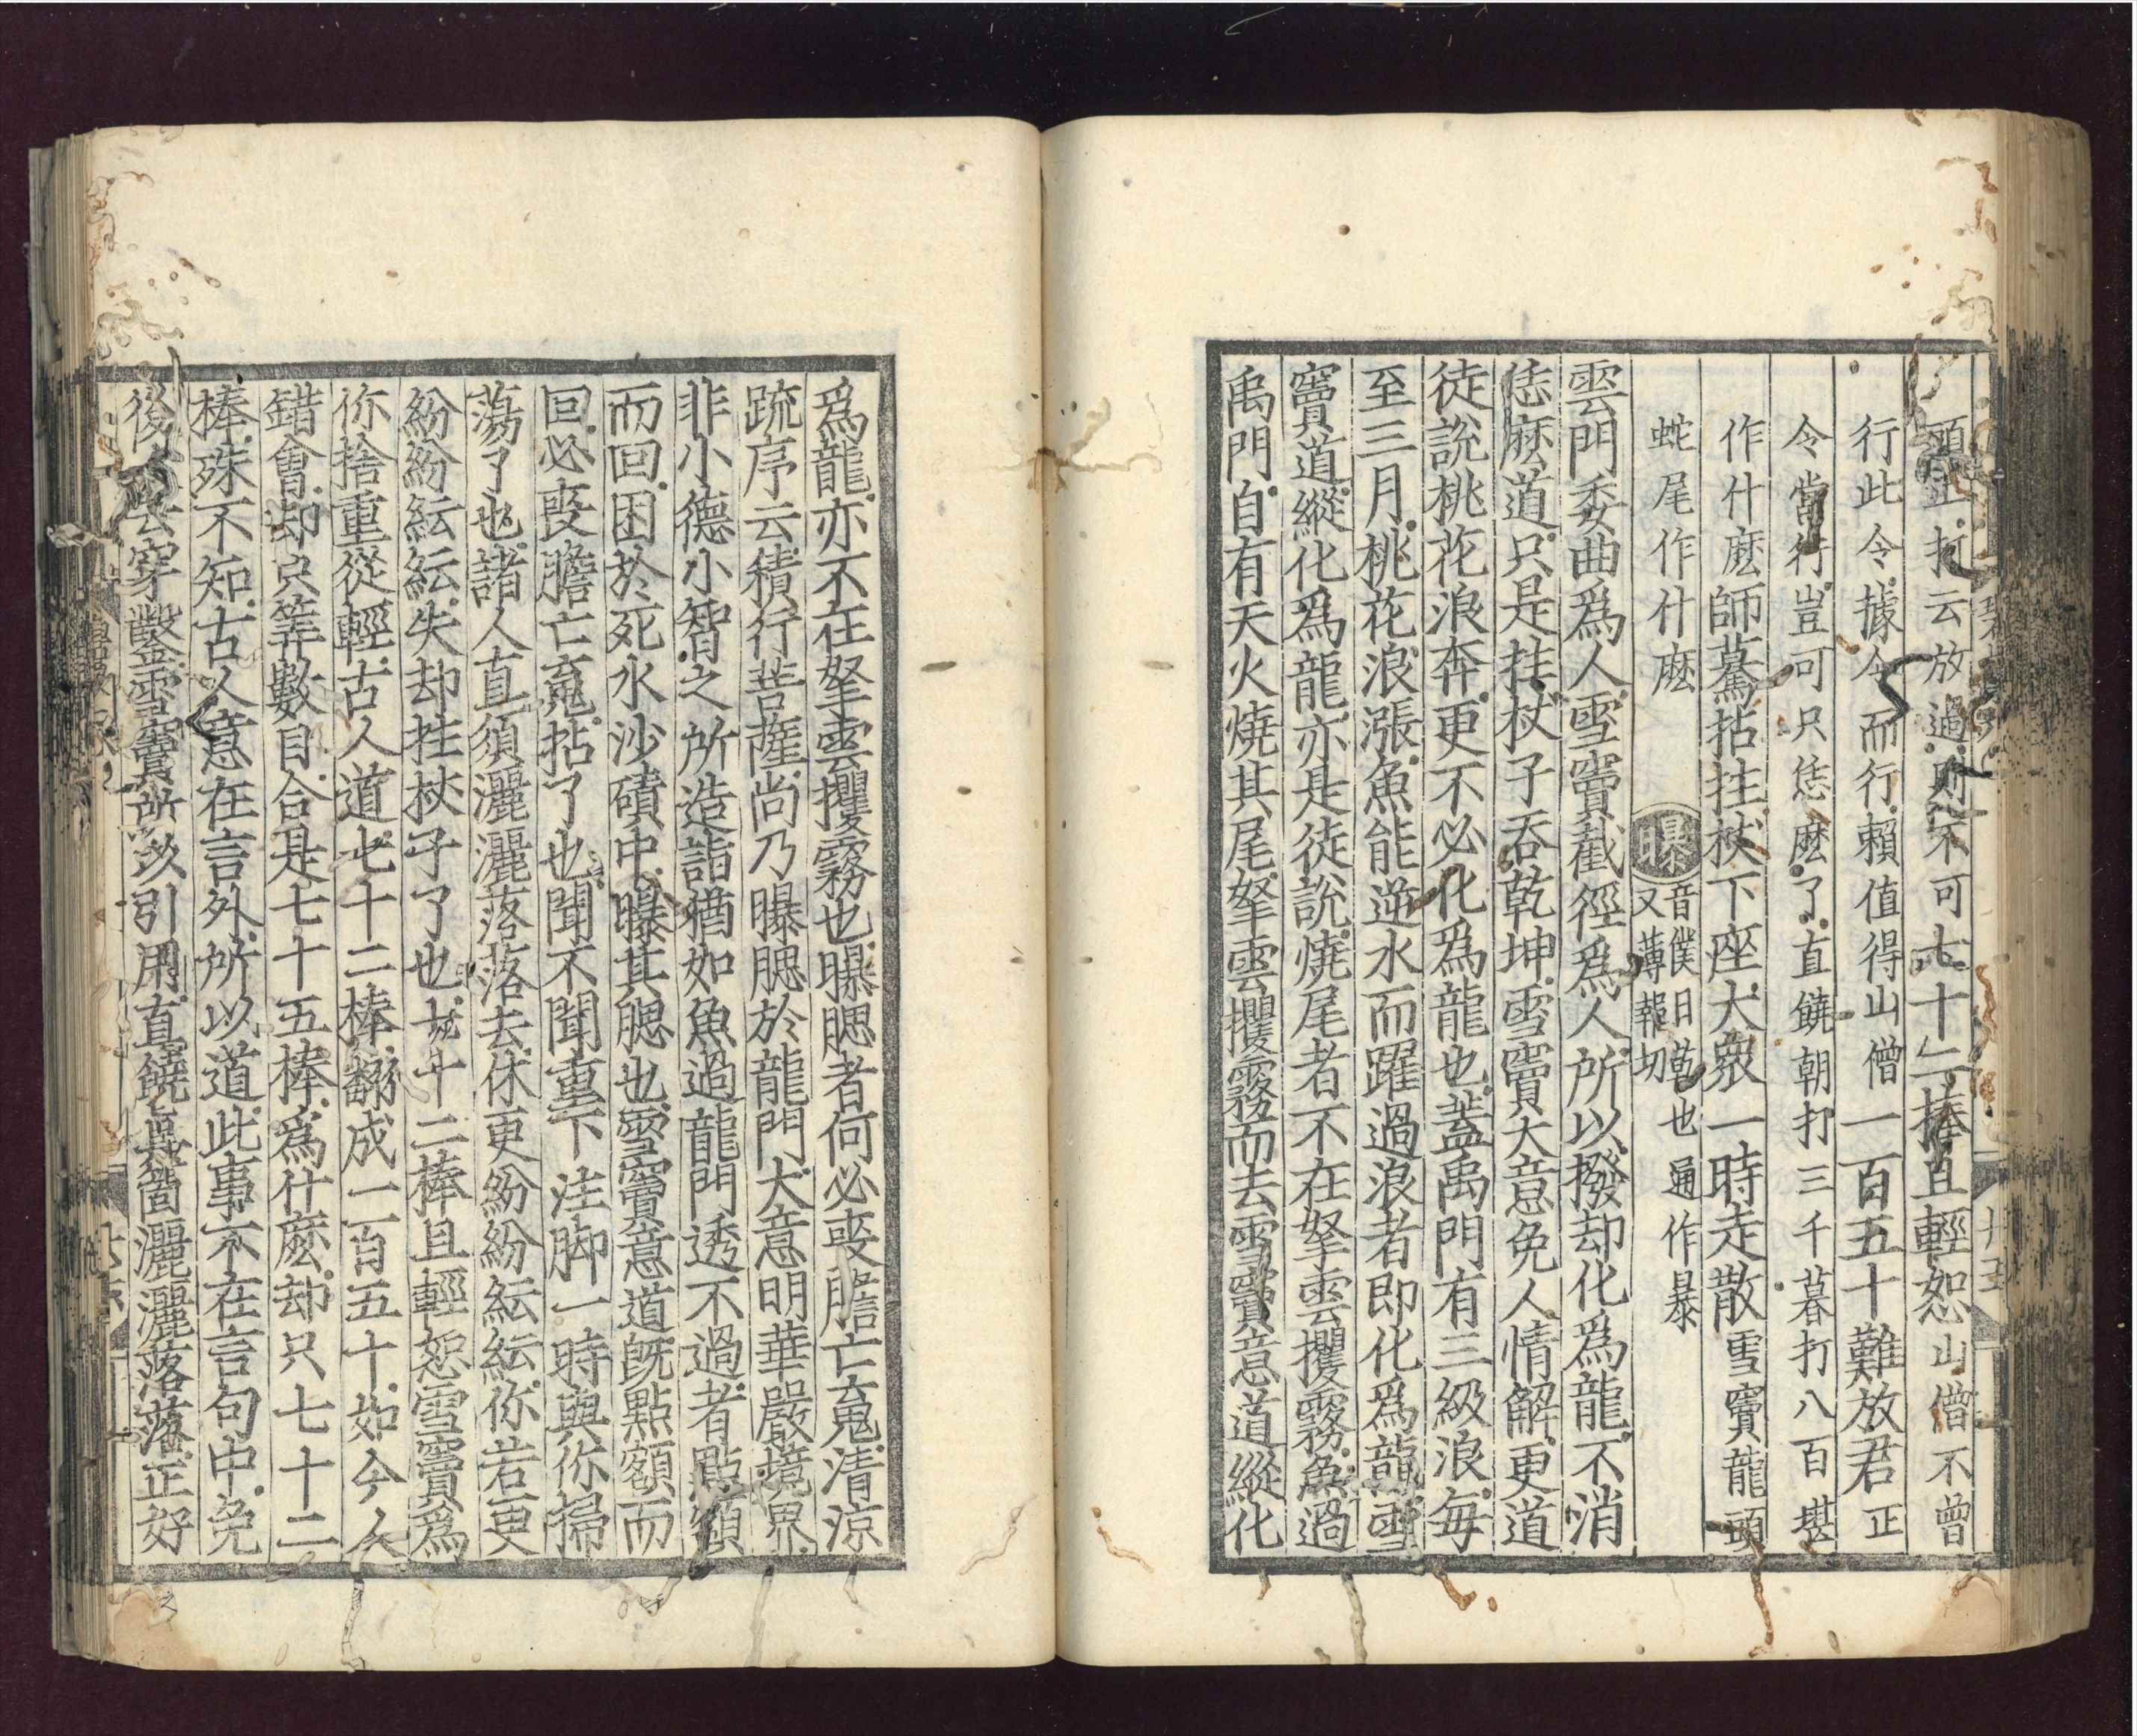 頭正打云放過則不可七十二棒且輕恕山僧不曾
行此令據令而行賴值得山僧一百五十難放君正
令當行豈可只恁麼了直饒朝打三千暮打八百堪
作什麼師驀拈拄杖下座大衆一時走散雪竇龍頭
蛇尾作什麼
曝音僕日乾也通作暴
又薄報切
雲門委曲爲人雪竇截徑爲人所以撥却化爲龍不消
恁麼道只是拄杖子吞乾坤雪竇大意免人情解更道
徒說桃花浪奔更不必化爲龍也蓋禹門有三級浪每
至三月桃花浪漲魚能逆水而躍過浪者即化爲龍雪
竇道縱化爲龍亦是徒說燒尾者不在拏雲攫霧魚過
禹門自有天火燒其尾拏雲攫霧而去雪竇意道縱化
爲龍亦不在拏雲攫霧也曝腮者何必喪膽亡䰟清涼
疏序云積行菩薩尚乃曝腮於龍門大意明華嚴境界
非小德小智之所造詣猶如魚過龍門透不過者點額
而回困於死水沙磧中曝其腮也雪竇意道旣點額而
回必喪膽亡䰟拈了也聞不聞重下注脚一時與你掃
蕩了也諸人直須灑灑落落去休更紛紛紜紜你若更
紛紛紜紜失却拄杖子了也七十二棒且輕恕雪竇爲
你捨重從輕古人道七十二棒翻成一百五十如今人
錯會却只筭數目合是七十五棒爲什麼却只七十二
棒殊不知古人意在言外所以道此事不在言句中免
後人去穿鑿雪竇所以引用直饒眞箇灑灑落落正好